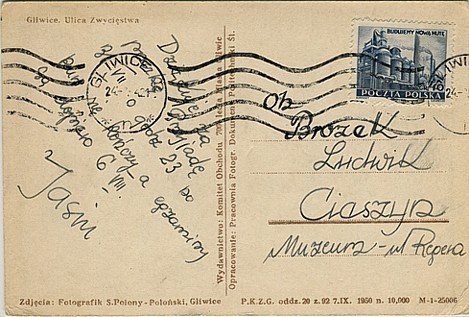 Gliwice. Ulica Zwycięstwa
BUDUJEMY NOWĄ HUTĘ
POCZTA POLSKA
GLIWICE
VII
24
Dziękuję za
Przyjadę po
23
a egzaminy
kończy
do domu
6 VIII.
Jasiu
Wydawnictwo: Komitet Obchodu 700-lecia Miasta Gliwic
Opracowanie: Pracownia Fotogr. Dokument. Politechniki Śl.
Ob
Brożek
Ludwik
Cieszyn
Muzeum - ul Regera
Zdjęcia: Fotografik S. Polony-Poloński, Gliwice
P.K.Z.G. oddz. 20 z. 92 7.IX. 1950 n. 10,000 M-1-25006